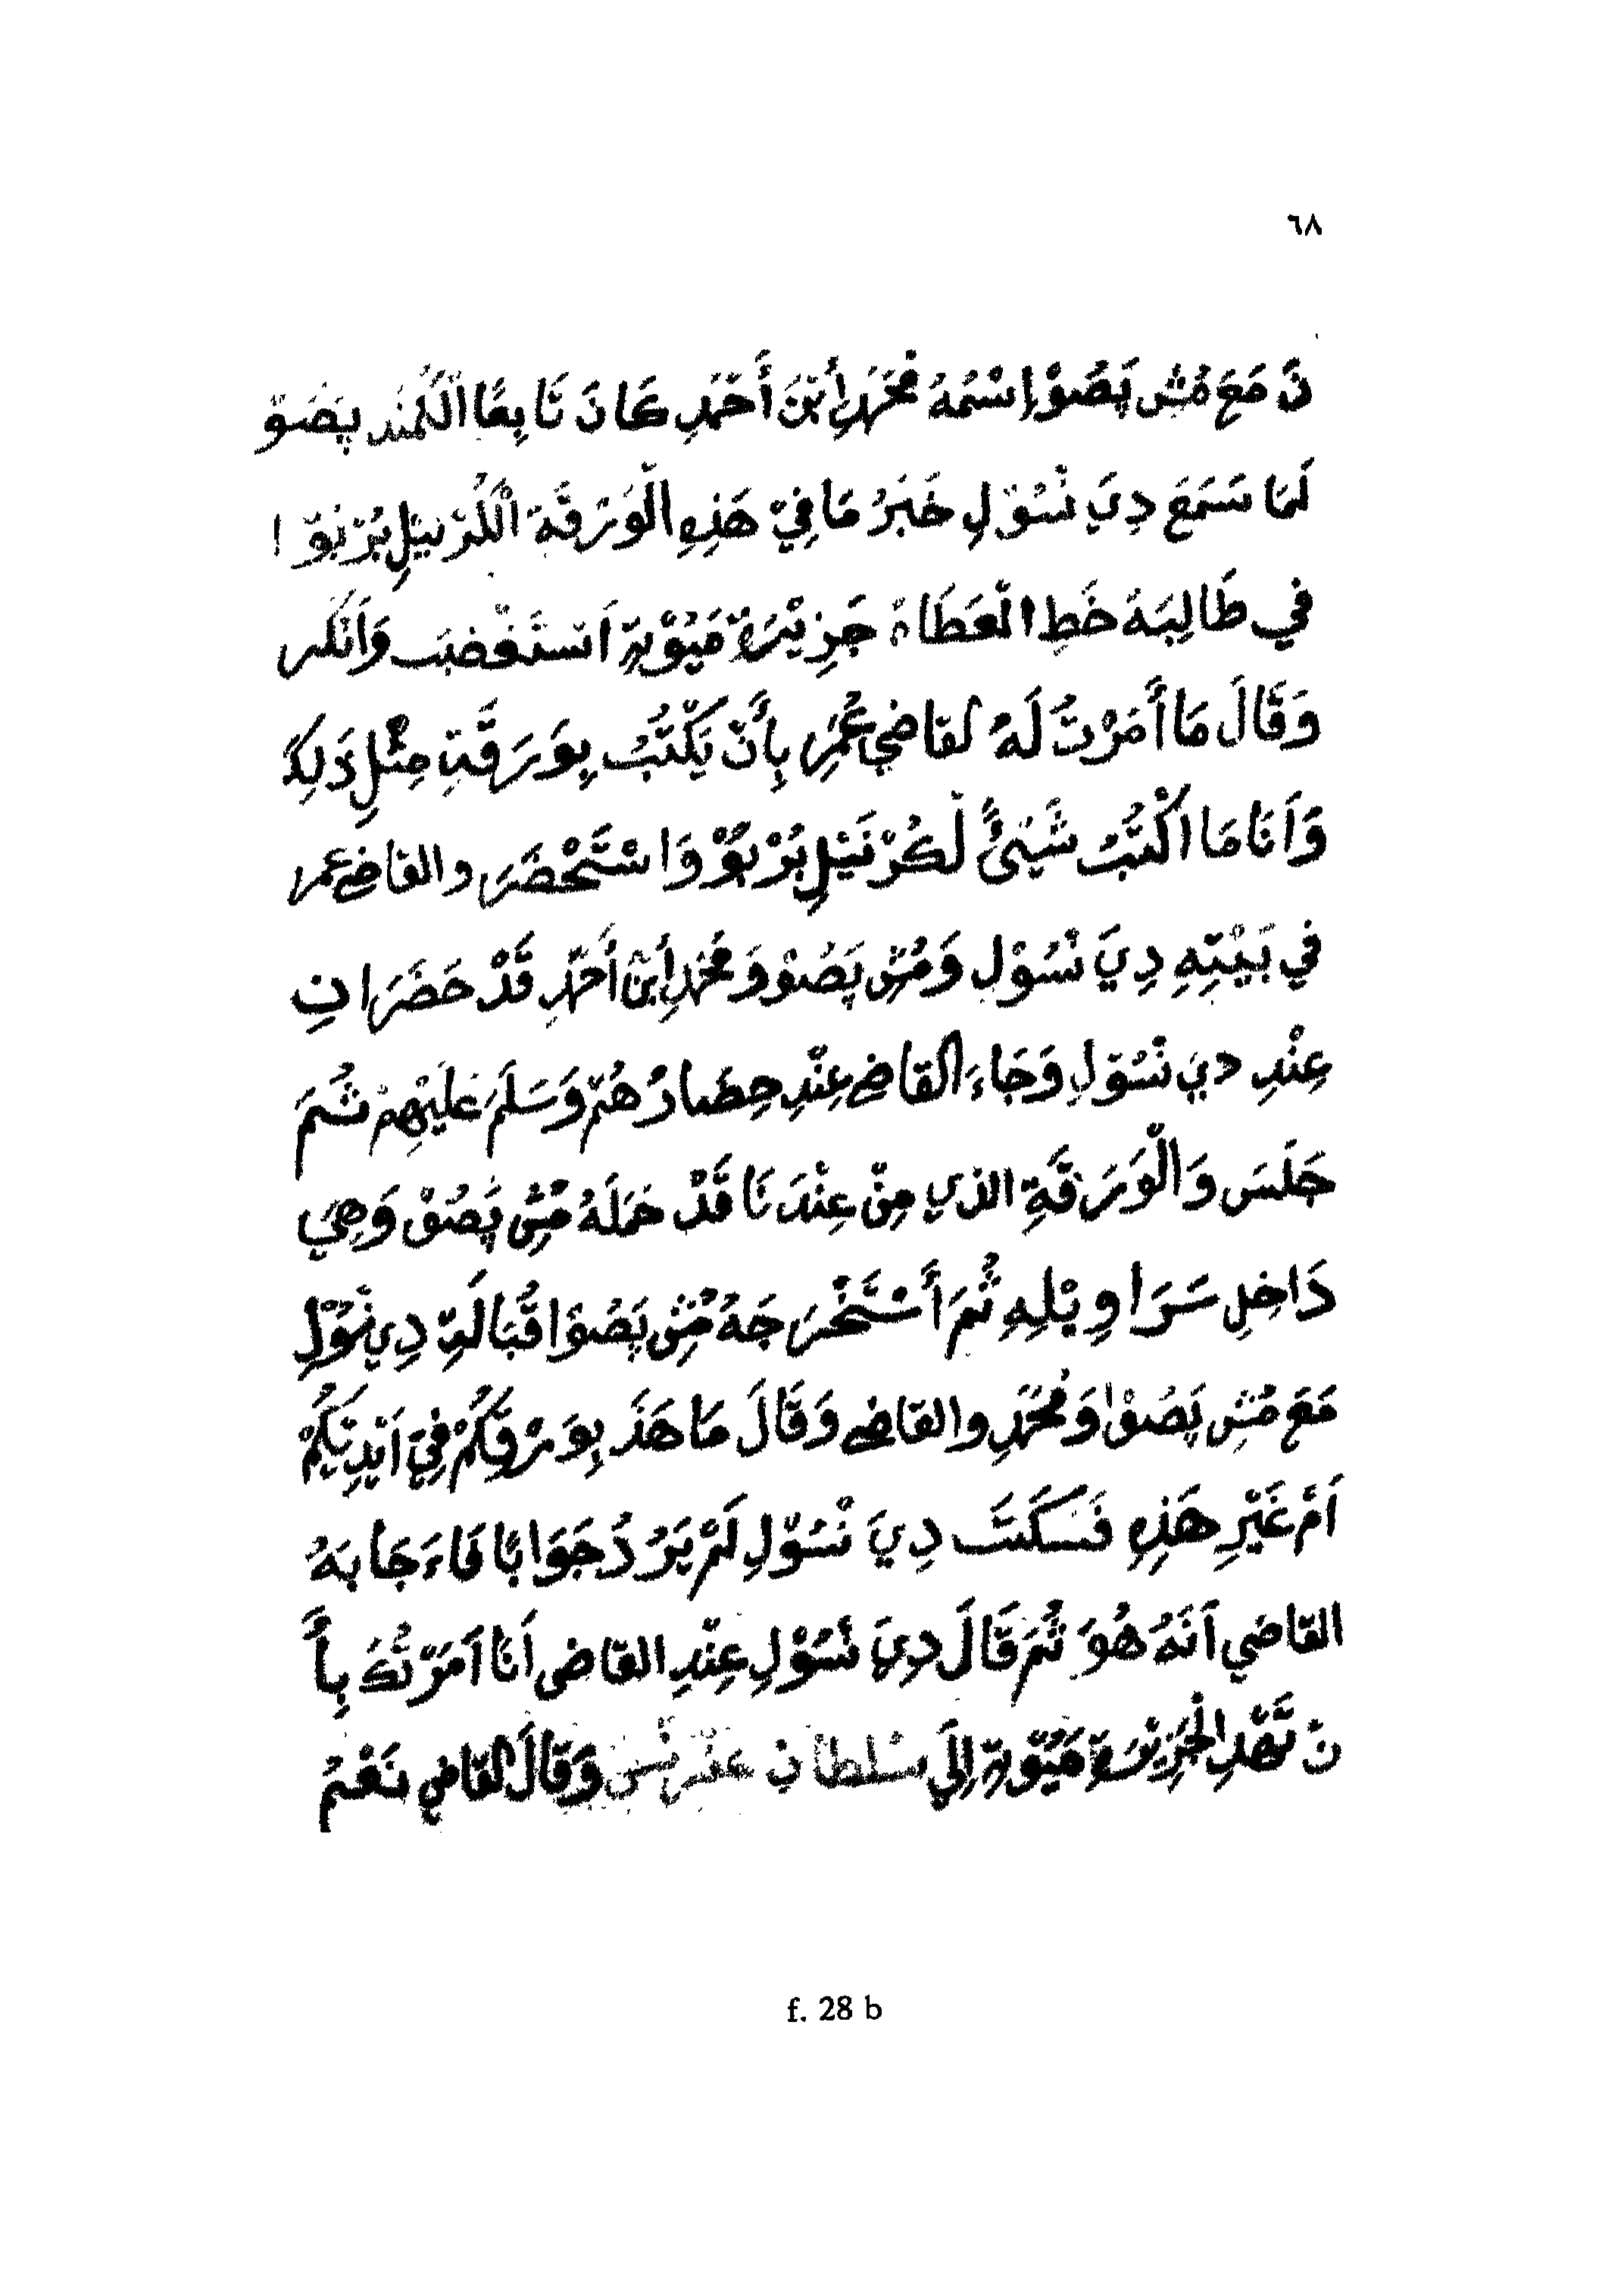 ٦٨
نَ مَعَ مُشِ پَصُوْ إِسْمُهُ مُحَمَّدِ إِبْنَ أَحْمَدِ كَانَ تَابِعًا الْكُمَنْدِ پَصَوْ
لَمَا سَمَعَ دِيَ نْسُوْلِ خَبَرُ مَا فِيْ هَذِهِ الْوَرَقَةَ الْكُرْنَيْلِ بُرْبَوْ ا
في طَالِبَهُ خَطِ الْعَطَاهُ جَزِيْرَةْ مَيُوْتِهِ اَسْتَغْضَبَ وَاَنْكَر
وَقَالَ مَا أَمَرْتُ لَهُ لقاضي عُمَرِ بِأَنْ يَكْتُبُ بِوَرَقَةِ مِثْلِ ذَلِكَ
وَاَنَا مَا اكْتُبُ شَيْئً لَكُرْنَيْلِ بُرْبَوْ وَاسْتَحْضَرَ والقاضي عمر
في بَيْتِهِ دِيَ نْسُوْلِ وَمُشِ پَصُوْ وَمُحَمَّدِ إِبْنِ أَحْمَدِ قَدْ حَضَرَانِ
عِنْدِ دِيَ نْسُوْلِ وَجَاءَ القاضي عِنْدِ حِضَارُهُمْ وَسَلَمَ عَلَيْهِمْ ثُمَ
جَلَسَ وَالْوَرَقَةِ الذي مِنْ عِنْدَنَا قَدْ حَمَلَهُ مُشِ پَصُوْ وَهِيَ
دَاخِلِ سَرَاوِيْلِهِ ثُمَ أَسْتَخْرَجَهُ مُشِ پَصُوَا قُبَالَةِ دِيَ نْسُوْلِ
مَعَ مُشِ پَصُوْا وَمُحَمَّدِ والقاضي وَقَالَ مَا هَذَ بِوَرَقِكُمْ فِيْ اَيْدِيْكُمْ
اَمْ غَيْرِ هَذِهِ فَسَكَتَ دِيَ نْسُوْلِ لَمْ يَرُدُ جَوَابًا فَاءَجَابَهُ
القاضي اَنَهُ هُوَ ثُمَ قَالَ دِيَ نْسُوْلِ عِنْدِ القاضي اَنَا اَمَرْتُكَ بِأَ
نْ تَعْهَدِ الْجَزِيْرَةِ مَيُوْتِهِ اِلَى سُلْطَانِ وَقَالَ القاضي نَعَمْ
f. 28 b